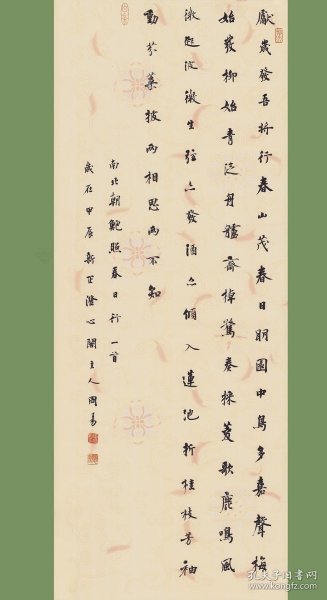 獻歲發吾將行春山茂春日明園中鳥多嘉聲梅
始發柳始青泛舟艫齊棹驚奏採菱歌鹿鳴風
微起波微生弦亦發酒亦傾入蓮池折桂枝芳袖
動芬葉披兩相思兩不知
南北朝鮑照春日行一首
歲在甲辰新正澄心閣主人
孔夫子旧书网